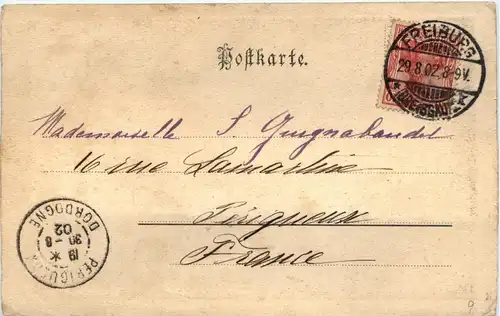 Postkarte.
FREIBURG
29.8.02.8-9V.
* (BREISGAU) *
Mademoiselle S Guignabaudet
16 rue Lamartine
Périgueux
France
PERIGUEUX
19 *
30 -8
02
DORDOGNE